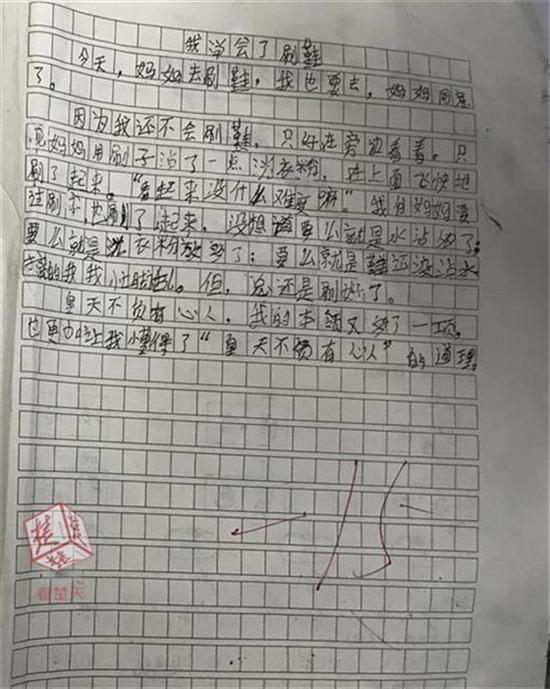 我学会了刷鞋
今天，妈妈去刷鞋，我也要去，妈妈同意
了。
因为我还不会刷鞋，只好在旁边看着。只
见妈妈用刷子沾了一点洗衣粉，往上面飞快地
刷了起来。“看起来没什么难度嘛。”我向妈妈要
过刷子也刷了起来。没想道要么就是水沾多了；
要么就是洗衣粉放多了；要么就是鞋还没沾水
的我
。但，总还是刷好了。
皇天不负有心人，我的本领又多了一项。
也更加让我懂得了“皇天不负有心人”的道理
楚
看楚天